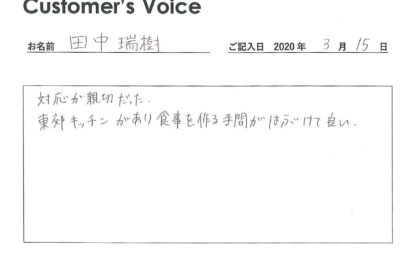 Customer's Voice
お名前 田中 瑞樹 ご記入日 2020年 3月 15日
対応が親切だった.
東郊キッチンがあり食事を作る手間がはぶけて良い.